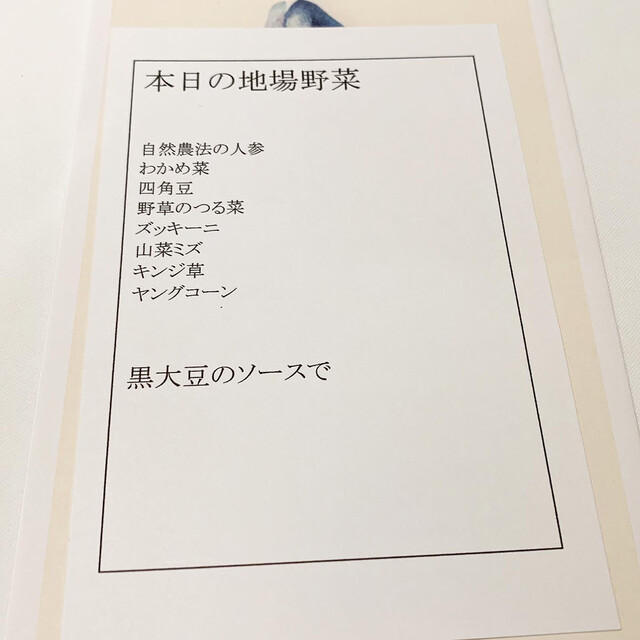 本日の地場野菜
自然農法の人参
わかめ菜
四角豆
野草のつる菜
ズッキーニ
山菜ミズ
キンジ草
ヤングコーン
黒大豆のソースで